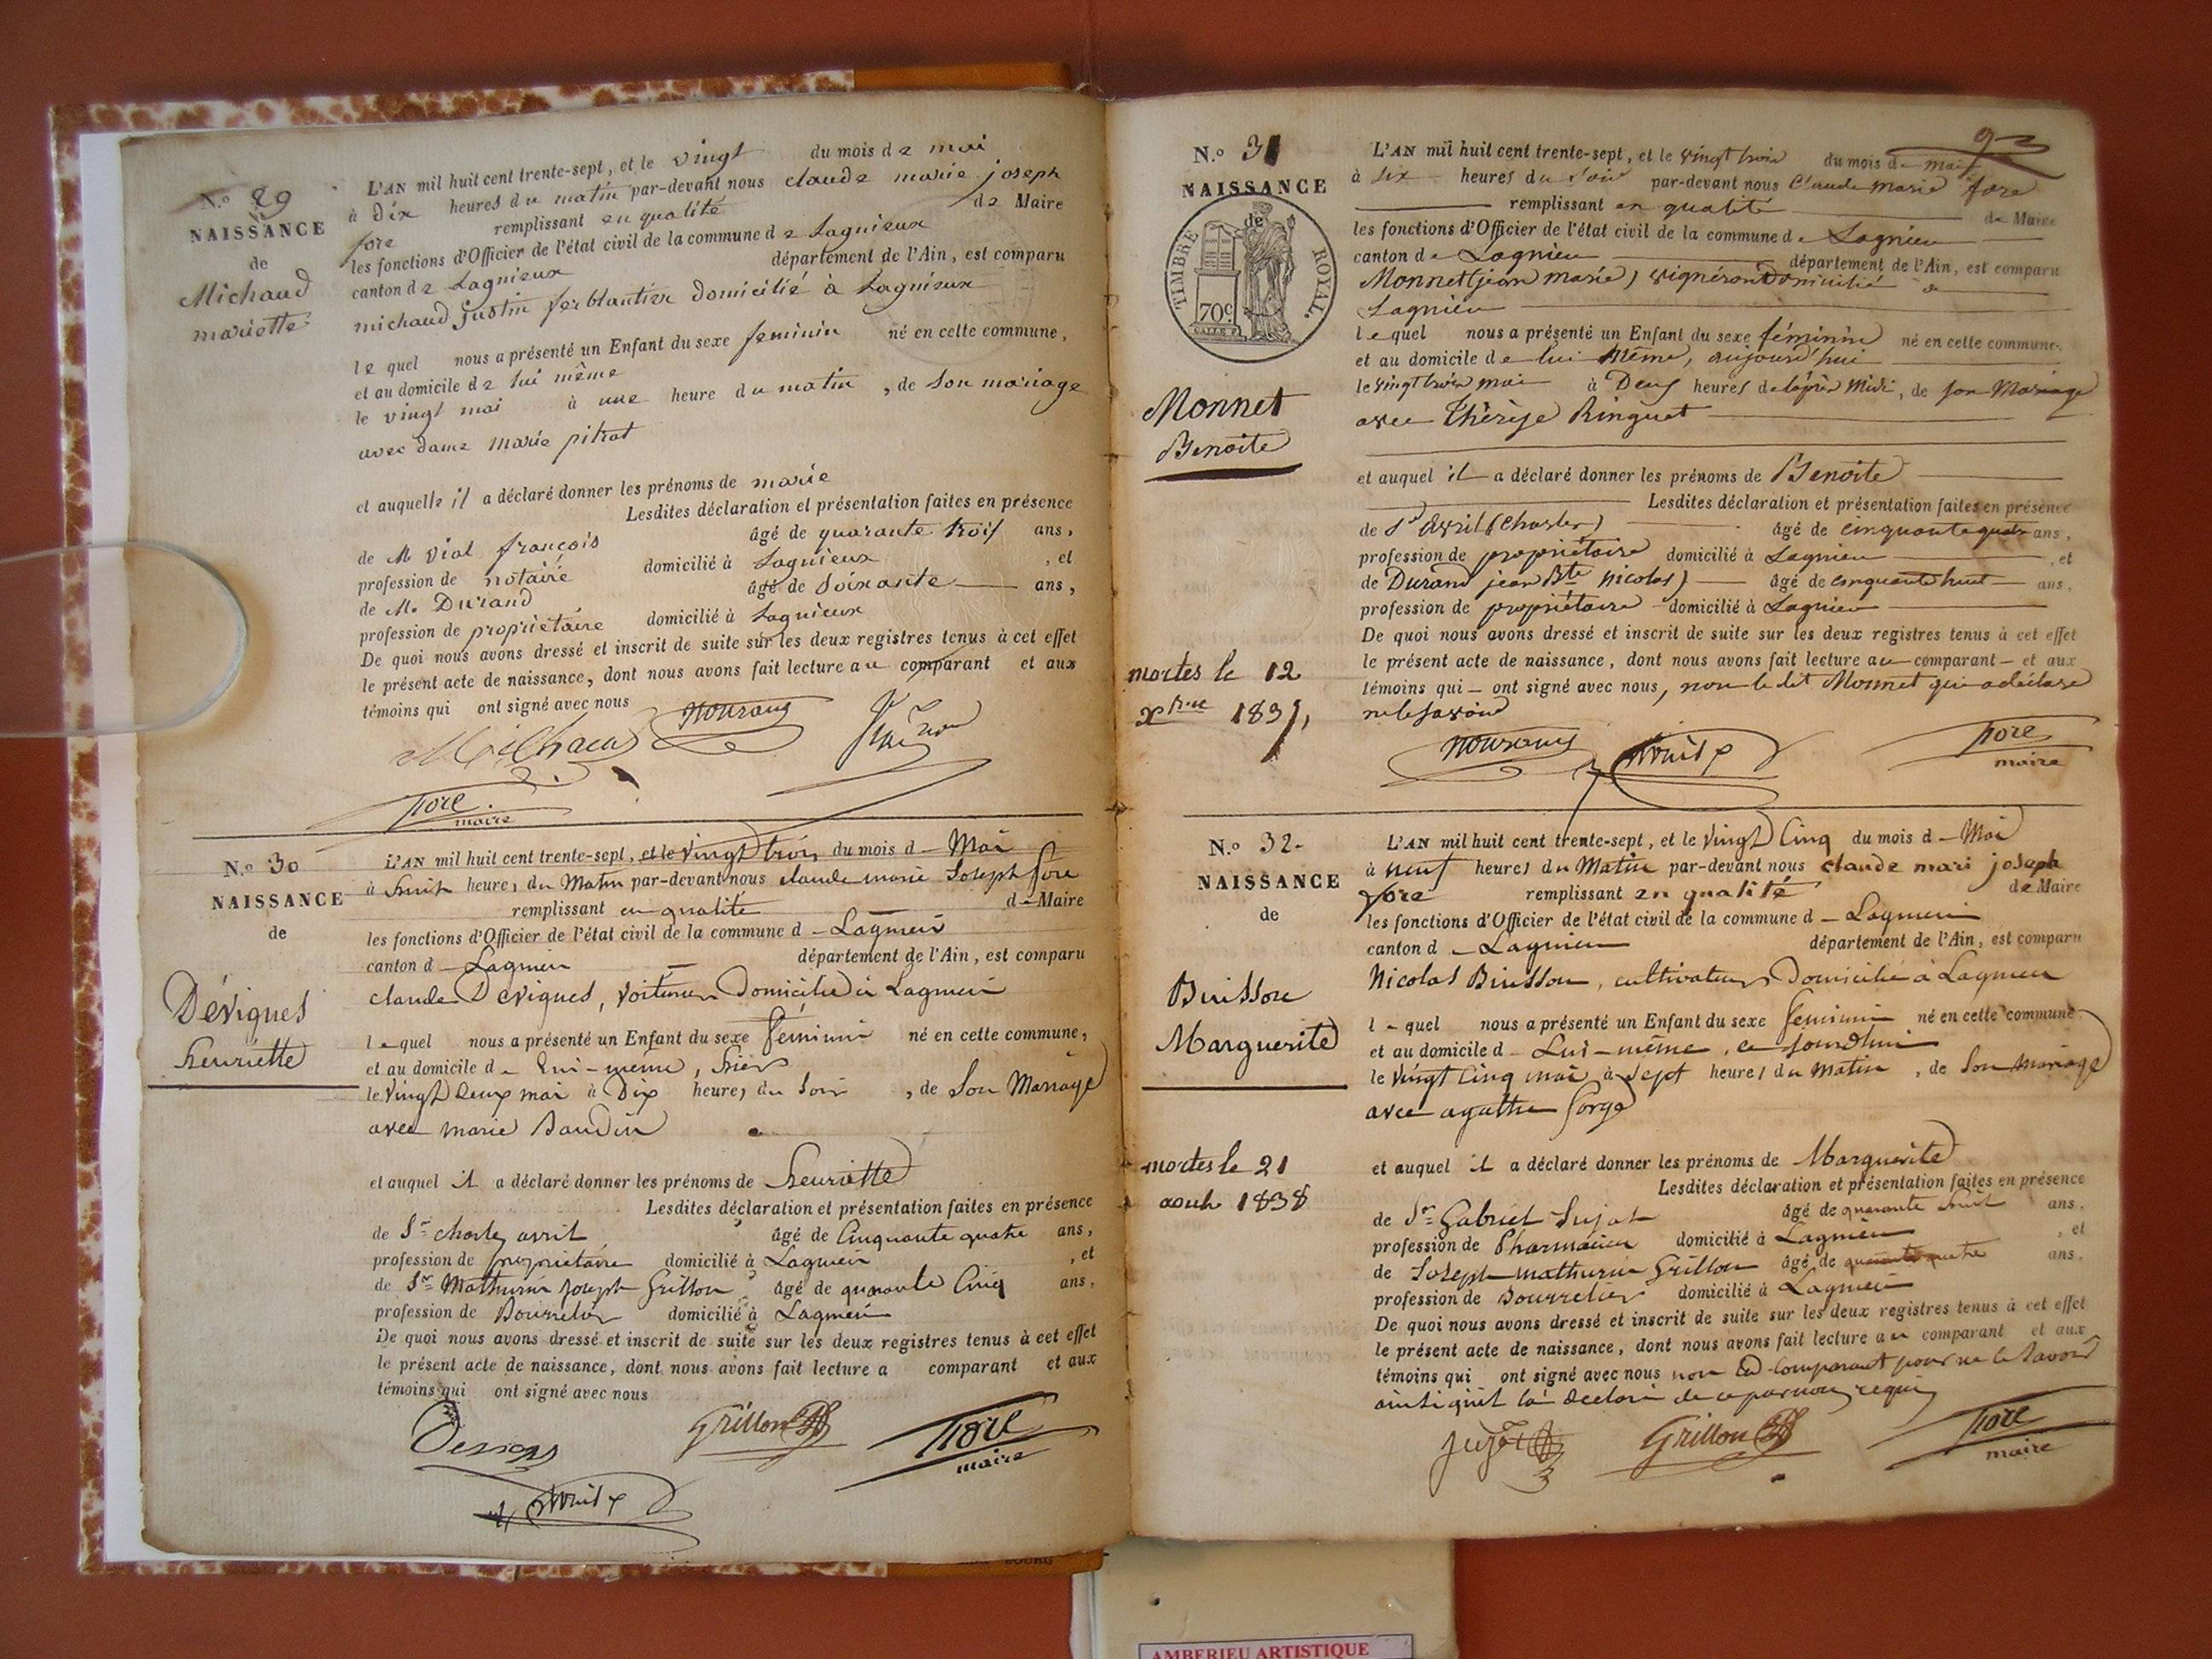 N.º 29
NAISSANCE
de
Michaud
mariette
L'AN mil huit cent trente-sept, et le vingt du mois de mai
à dix heures du matin par-devant nous claude marie joseph
fore remplissant en qualité de Maire
les fonctions d'Officier de l'état civil de la commune de Lagnieux
canton de Lagnieux département de l'Ain, est comparu
michaud justin ferblantier domicilié à Lagnieux
lequel nous a présenté un Enfant du sexe feminin né en cette commune,
et au domicile de lui même
le vingt mai à une heure du matin, de son mariage
avec dame marie pitrat
et auquelle il a déclaré donner les prénoms de marie
Lesdites déclaration et présentation faites en présence
de M vial françois âgé de quarante trois ans,
profession de notaire domicilié à Lagnieux, et
de M. Durand âgé de soixante ans,
profession de propriétaire domicilié à Lagnieux
De quoi nous avons dressé et inscrit de suite sur les deux registres tenus à cet effet
le présent acte de naissance, dont nous avons fait lecture au comparant et aux
témoins qui ont signé avec nous
fore
maire
N.º 30
NAISSANCE
de
Dévignes
henriette
L'AN mil huit cent trente-sept, et le vingt trois du mois d Mai
à huit heures du Matin par-devant nous claude marie Joseph fore
remplissant en qualité de Maire
les fonctions d'Officier de l'état civil de la commune d Lagnieu
canton d Lagnieu département de l'Ain, est comparu
claude Devignes, voiturier Domicilié à Lagnieu
lequel nous a présenté un Enfant du sexe féminin né en cette commune,
et au domicile de lui-même, hier
le vingt deux mai à Dix heures du soir, de Son Mariage
avec marie Baudin
et auquel il a déclaré donner les prénoms de henriette
Lesdites déclaration et présentation faites en présence
de Sr charles avril âgé de Cinquante quatre ans,
profession de propriétaire domicilié à Lagnieu, et
de Sr Mathurin joseph Grillon âgé de quarante Cinq ans,
profession de Bourrelier domicilié à Lagnieu
De quoi nous avons dressé et inscrit de suite sur les deux registres tenus à cet effet
le présent acte de naissance, dont nous avons fait lecture a comparant et aux
témoins qui ont signé avec nous
Grillon
fore
maire
N.º 31
NAISSANCE
de
TIMBRE ROYAL.
70c.
Monnet
Benoite
mortes le 12
xbre 1837,
L'AN mil huit cent trente-sept, et le vingt trois du mois de mai
à six heures du soir par-devant nous Claude marie fore
remplissant en qualité de Maire
les fonctions d'Officier de l'état civil de la commune de Lagnieu
canton de Lagnieu département de l'Ain, est comparu
Monnet (jean marie) vigneron Domicilié à
Lagnieu
lequel nous a présenté un Enfant du sexe féminin né en cette commune,
et au domicile de lui même, aujourd'hui
le vingt trois mai à Deux heures de l'après Midi, de son Mariage
avec Thérèse Ringuet
et auquel il a déclaré donner les prénoms de Benoite
Lesdites déclaration et présentation faites en présence
de Sr avril (Charles) âgé de cinquante quatre ans,
profession de propriétaire domicilié à Lagnieu, et
de Durand jean Bte nicolas) âgé de cinquante huit ans,
profession de propriétaire domicilié à Lagnieu
De quoi nous avons dressé et inscrit de suite sur les deux registres tenus à cet effet
le présent acte de naissance, dont nous avons fait lecture au comparant et aux
témoins qui ont signé avec nous, non le dit Monnet qui a déclaré
ne le savoir
fore
maire
N.º 32
NAISSANCE
de
Buisson
Marguerite
mortes le 21
août 1838
L'AN mil huit cent trente-sept, et le Vingt Cinq du mois d Mai
à neuf heures du Matin par-devant nous claude mari joseph
fore remplissant en qualité de Maire
les fonctions d'Officier de l'état civil de la commune d Lagnieu
canton d Lagnieu département de l'Ain, est comparu
Nicolas Buisson, cultivateur Domicilié à Lagnieu
lequel nous a présenté un Enfant du sexe féminin né en cette commune
et au domicile d Lui-même, ce jourd'hui
le vingt Cinq mai à sept heures du matin, de Son mariage
avec agathe Gorge
et auquel il a déclaré donner les prénoms de Marguerite
Lesdites déclaration et présentation faites en présence
de Sr Gabriel Sujat âgé de quarante huit ans,
profession de Pharmacien domicilié à Lagnieu, et
de Joseph mathurin Grillon âgé de quarante quatre ans,
profession de Bourrelier domicilié à Lagnieu
De quoi nous avons dressé et inscrit de suite sur les deux registres tenus à cet effet
le présent acte de naissance, dont nous avons fait lecture au comparant et aux
témoins qui ont signé avec nous non Ed comparant pour ne le savoir
ainsi qu'il l'a déclaré de ce par nous requis
Grillon
fore
maire
AMBERIEU ARTISTIQUE